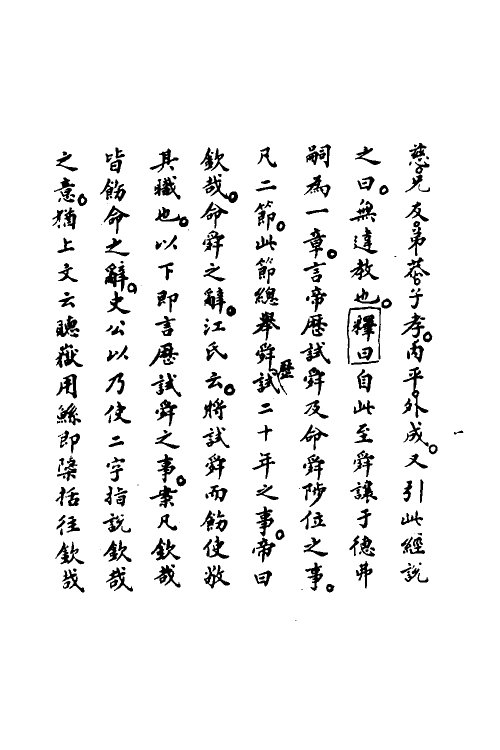 慈。兄友。弟恭。子孝。內平。外成。又引此經說
之曰。無違教也。釋曰自此至舜讓于德弗
嗣為一章。言帝歷試舜及命舜陟位之事。
凡二節。此節總舉舜歷試二十年之事。帝曰
欽哉。命舜之辭。江氏云。將試舜而飭使敬
其職也。以下即言歷試舜之事。案凡欽哉
皆飭命之辭。史公以乃使二字指說欽哉
之意。猶上文云聽嶽用鯀即檃括往欽哉